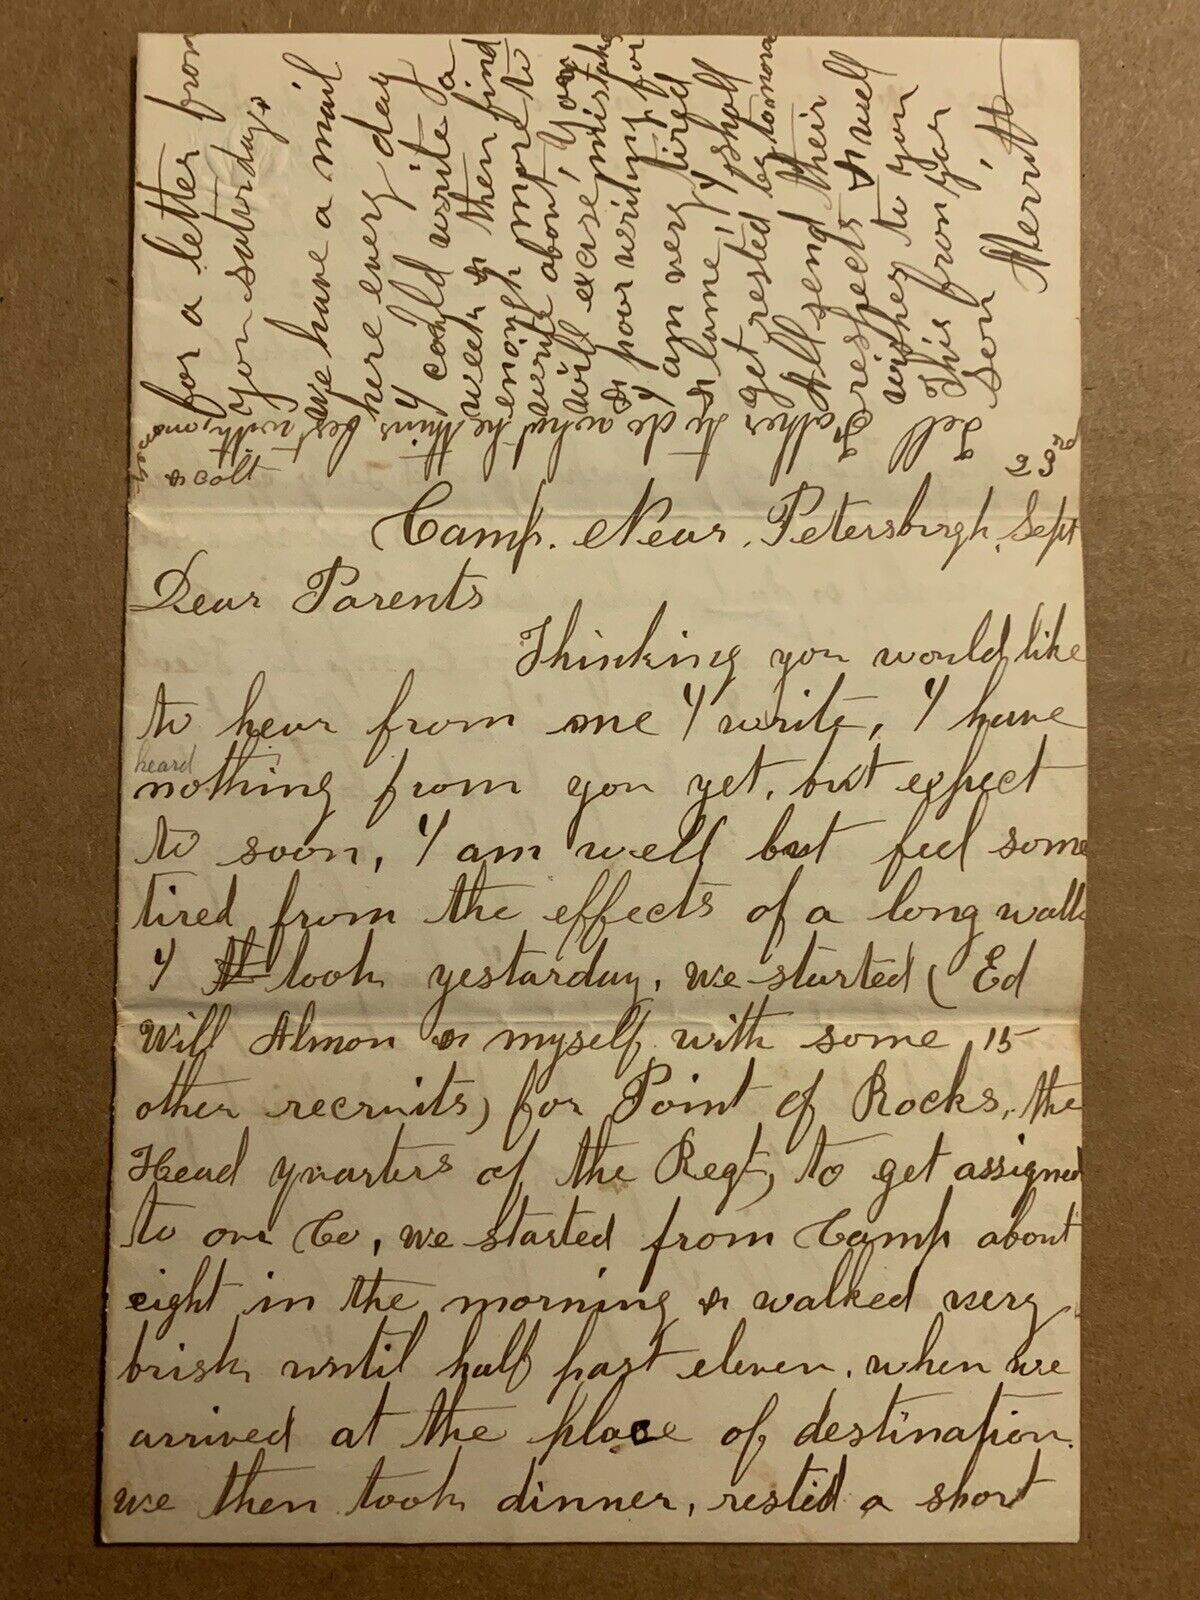 Camp. Near. Petersburgh. Sept
23rd
Dear Parents
Thinking you would like
to hear from me I write, I have
heard
nothing from you yet. but expect
to soon, I am well but feel some
tired from the effects of a long walk
I took yestarday, we started ( Ed
Will Almon & myself with some 15
other recruits) for Point of Rocks, the
Head quarters of the Regt, to get assigned
to our Co, we started from Camp about
eight in the morning & walked very
brisk until half past eleven. when we
arrived at the place of destination.
we then took dinner, rested a short
for a letter from
you saturday.
we have a mail
here every day
I could write a
week & then find
enough more to
write about, You
will excuse, mistakes
& poor writing for
I am very tired
& lame, I shall
get rested by tomora
All send their
respects & well
wishes to you
This from your
Son, Merritt
Tell
Father to do what he thinks best with
& colt